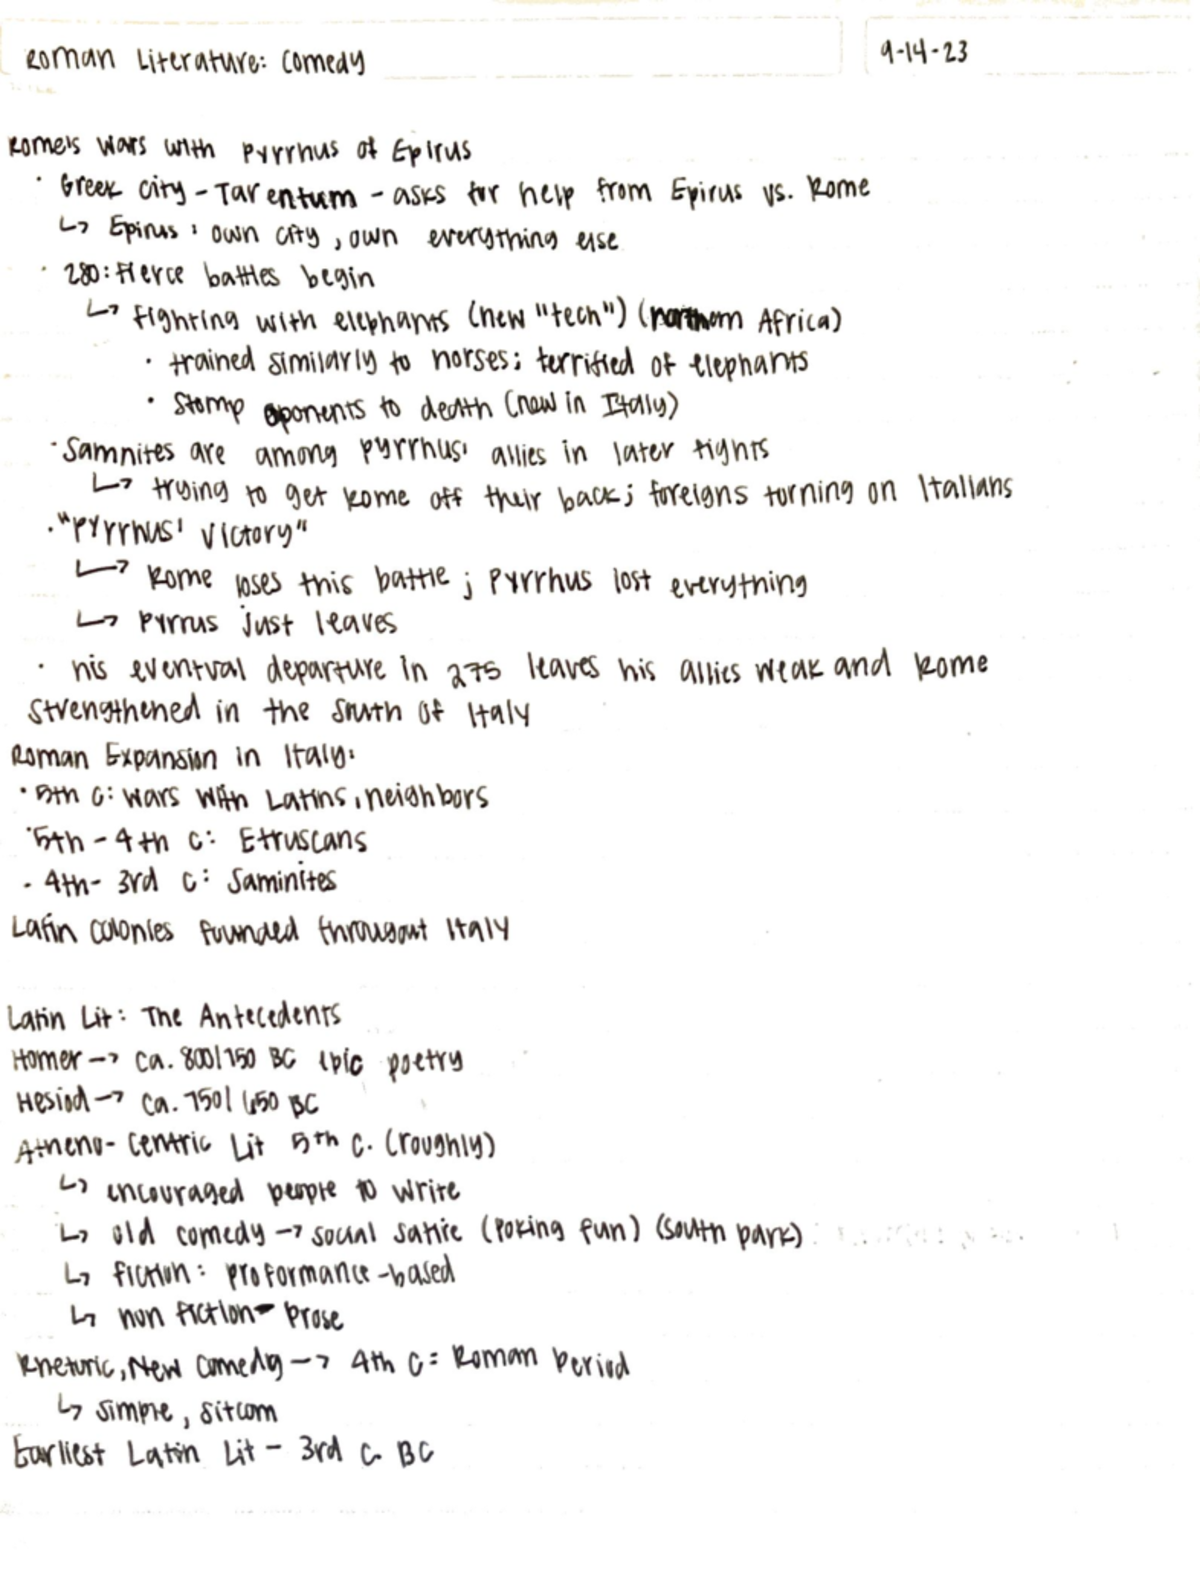 Roman Literature: Comedy
9-14-23
Rome's Wars with Pyrrhus of Epirus
· Greek city - Tarentum - asks for help from Epirus vs. Rome
↳ Epirus: own city, own everything else
· 280: Fierce battles begin
↳ fighting with elephants (new "tech") (northern Africa)
· trained similarly to horses; terrified of elephants
· Stomp oponents to death (new in Italy)
· Samnites are among Pyrrhus' allies in later fights
↳ trying to get Rome off their back; foreigns turning on Italians
· "Pyrrhus' Victory"
↳ Rome loses this battle; Pyrrhus lost everything
↳ Pyrrus just leaves
· his eventual departure in 275 leaves his allies weak and Rome
strengthened in the South of Italy
Roman Expansion in Italy:
· 5th c: wars with Latins, neighbors
· 5th - 4th c: Etruscans
· 4th - 3rd c: Saminites
Latin colonies founded througout Italy
Latin Lit: The Antecedents
Homer → ca. 800/750 BC epic poetry
Hesiod → ca. 750/650 BC
Atheno-Centric Lit 5th c. (roughly)
↳ encouraged people to write
↳ old comedy → social satire (poking fun) (South park)
↳ fiction: proformance-based
↳ non fiction - prose
Rhetoric, New Comedy → 4th c = Roman Period
↳ simple, sitcom
Earliest Latin Lit - 3rd c. BC